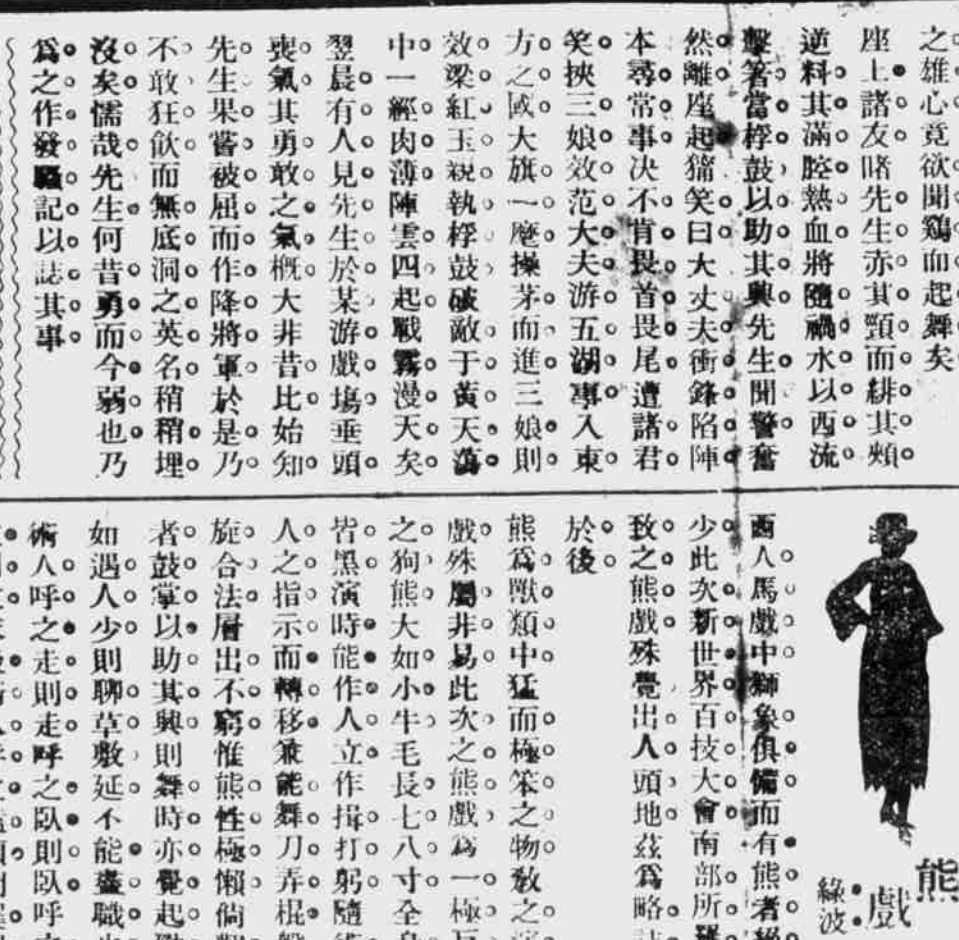 之雄心竟欲聞鷄而起舞矣
座上諸友睹先生赤其頸而緋其頰
逆料其滿腔熱血將隨禍水以西流
擊箸當桴鼓以助其興先生聞警奮
然離座起獰笑曰大丈夫衝鋒陷陣
本尋常事决不肯畏首畏尾遭諸君
笑挾三娘效范大夫游五湖事入東
方之國大旗一麾操茅而進三娘則
效梁紅玉親執桴鼓破敵于黃天蕩
中一經肉薄陣雲四起戰霧漫天矣
翌晨有人見先生於某游戲塲垂頭
喪氣其勇敢之氣概大非昔比始知
先生果嘗被屈而作降將軍於是乃
不敢狂飲而無底洞之英名稍稍埋
沒矣懦哉先生何昔勇而今弱也乃
爲之作發騷記以誌其事
熊戲
綠波
西人馬戲中獅象俱備而有熊者絕
少此次新世界百技大會南部所羅
致之熊戲殊覺出人頭地茲爲略誌
於後
熊爲獸類中猛而極笨之物敎之演
戲殊屬非易此次之熊戲爲一極巨
之狗熊大如小牛毛長七八寸全身
皆黑演時能作人立作揖打躬隨術
人之指示而轉移兼能舞刀弄棍盤
旋合法層出不窮惟熊性極懶倘觀
者鼓掌以助其興則舞時亦覺起勁
如遇人少則聊草敷延不能盡職
術人呼之走則走呼之臥則臥呼